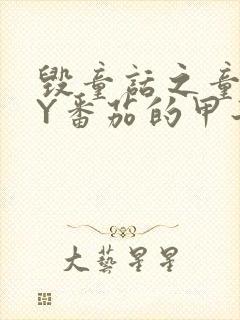 毁童话之童
Y番茄的甲
大艺星星